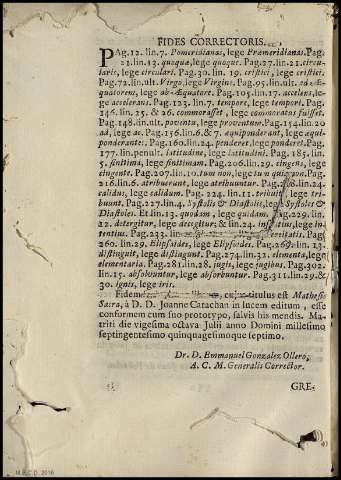 FIDES CORRECTORIS.
PAg.12. lin.7. Pomeridianas, lege Præmeridianas. Pag.
21.lin.13. quoquæ, lege quoque. Pag.27.lin.21. circu-
laris, lege circulari. Pag.30. lin. 19. cristici, lege cristici.
Pag.72.lin.ult. Virgo, lege Virgine. Pag.95.lin.ult. ad-Æ-
quatorem, lege ab-Æquatore. Pag.105.lin.17. accelens, le-
ge accelerans. Pag.123. lin.7. tempore, lege tempori. Pag.
146.lin. 25. & 26. commorasset, lege commoratus fuisset.
Pag.148.lin.ult. poventu, lege proventum. Pag.154.lin.20
ad, lege ac. Pag.156.lin.6.& 7. aquiponderant, lege aqui-
ponderante. Pag.160.lin.24. penderet, lege ponderet. Pag.
177. lin.penult. latitudine, latitudini. Pag.185. lin.
5. finitima, lege finitimam. Pag.206.lin.29. cingens, lege
cingente. Pag.207.lin.10. tum non, lege tum Pag.
216.lin.6. atribuerant, lege atribuuntur. lin.24.
calidus, lege calidum. Pag. 224. lin.11. tribuit, lege tri-
bunt. Pag.227.lin.4. Systolis & Diastolis, lege Systoles &
Diastoles. Et lin.13. quodam, lege quidam. Pag.229. lin.
22. detergitur, lege decegitur; & lin.24. lege in-
tentius. Pag.233. lin. Pag.
260. lin.29. Elipsoides, lege Elipsoides. lin.13.
distinguit, lege distingunt. Pag.274.lin.32. elementa, lege
elementaria. Pag.281.lin.28. jugis, lege jugibus. Pag.302.
lin.15. absolvuntur, lege absorbuntur. Pag.311.lin.29.&
30. ignis, lege iris.
Fidem titulus est Mathesis
Sacra, à D. D. Joanne Catachan in lucem editum, esse
conformem cum suo prototypo, salvis his mendis. Ma-
triti die vigesima octava Julii anno Domini millesimo
septingentesimo quinquagesimoque septimo.
Dr. D. Emmanuel Gonzalez Ollero,
A. C. M. Generalis Corrector.
GRE-
M.E.C.D. 2016